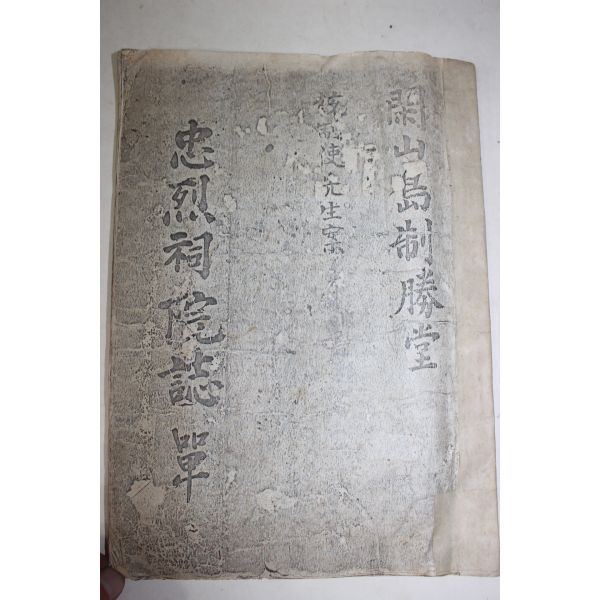 閑山島制勝堂
制使先生案
忠烈祠院誌 單